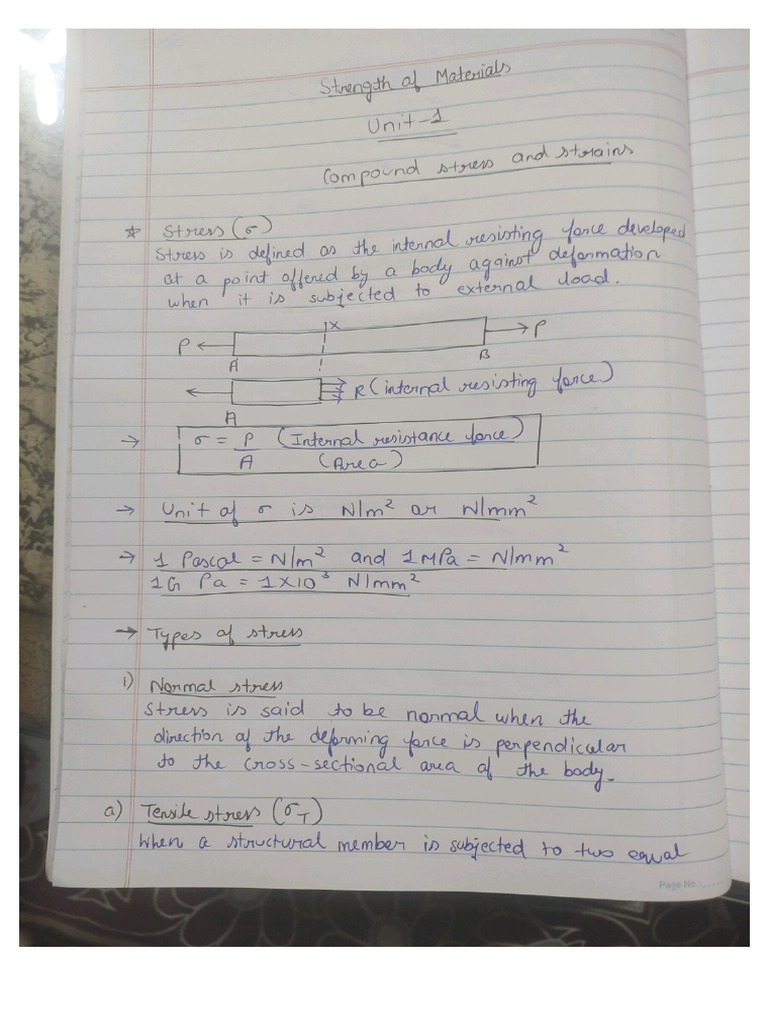 Strength of Materials
Unit-1
Compound stress and strains
* Stress (σ)
Stress is defined as the internal resisting force developed
at a point offered by a body against deformation
when it is subjected to external load.
P X P
A B
R (internal resisting force)
A
→ σ = P (Internal resistance force)
A (Area)
→ Unit of σ is N/m² or N/mm²
→ 1 Pascal = N/m² and 1 MPa = N/mm²
1G Pa = 1×10³ N/mm²
→ Types of stress
i) Normal stress
Stress is said to be normal when the
direction of the deforming force is perpendicular
to the cross-sectional area of the body.
a) Tensile stress (σT)
When a structural member is subjected to two equal
Page No.:.....